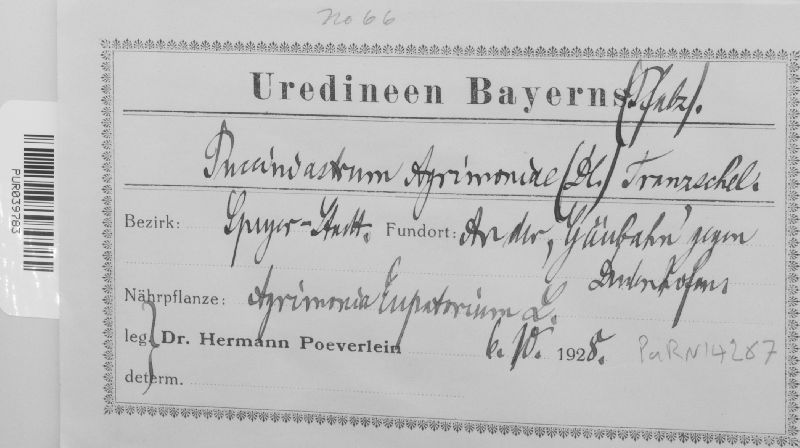 no 66
Uredineen Bayerns (Pfalz).
Pucciniastrum Agrimoniae (DC.) Tranzschel.
Bezirk: Speyer-Stadt. Fundort: An der „Gäubahn“ gegen
Dudenhofen.
Nährpflanze: Agrimonia Eupatorium L.
leg. Dr. Hermann Poeverlein 6. 10. 1928.
PuRN14267
determ.
PUR039783